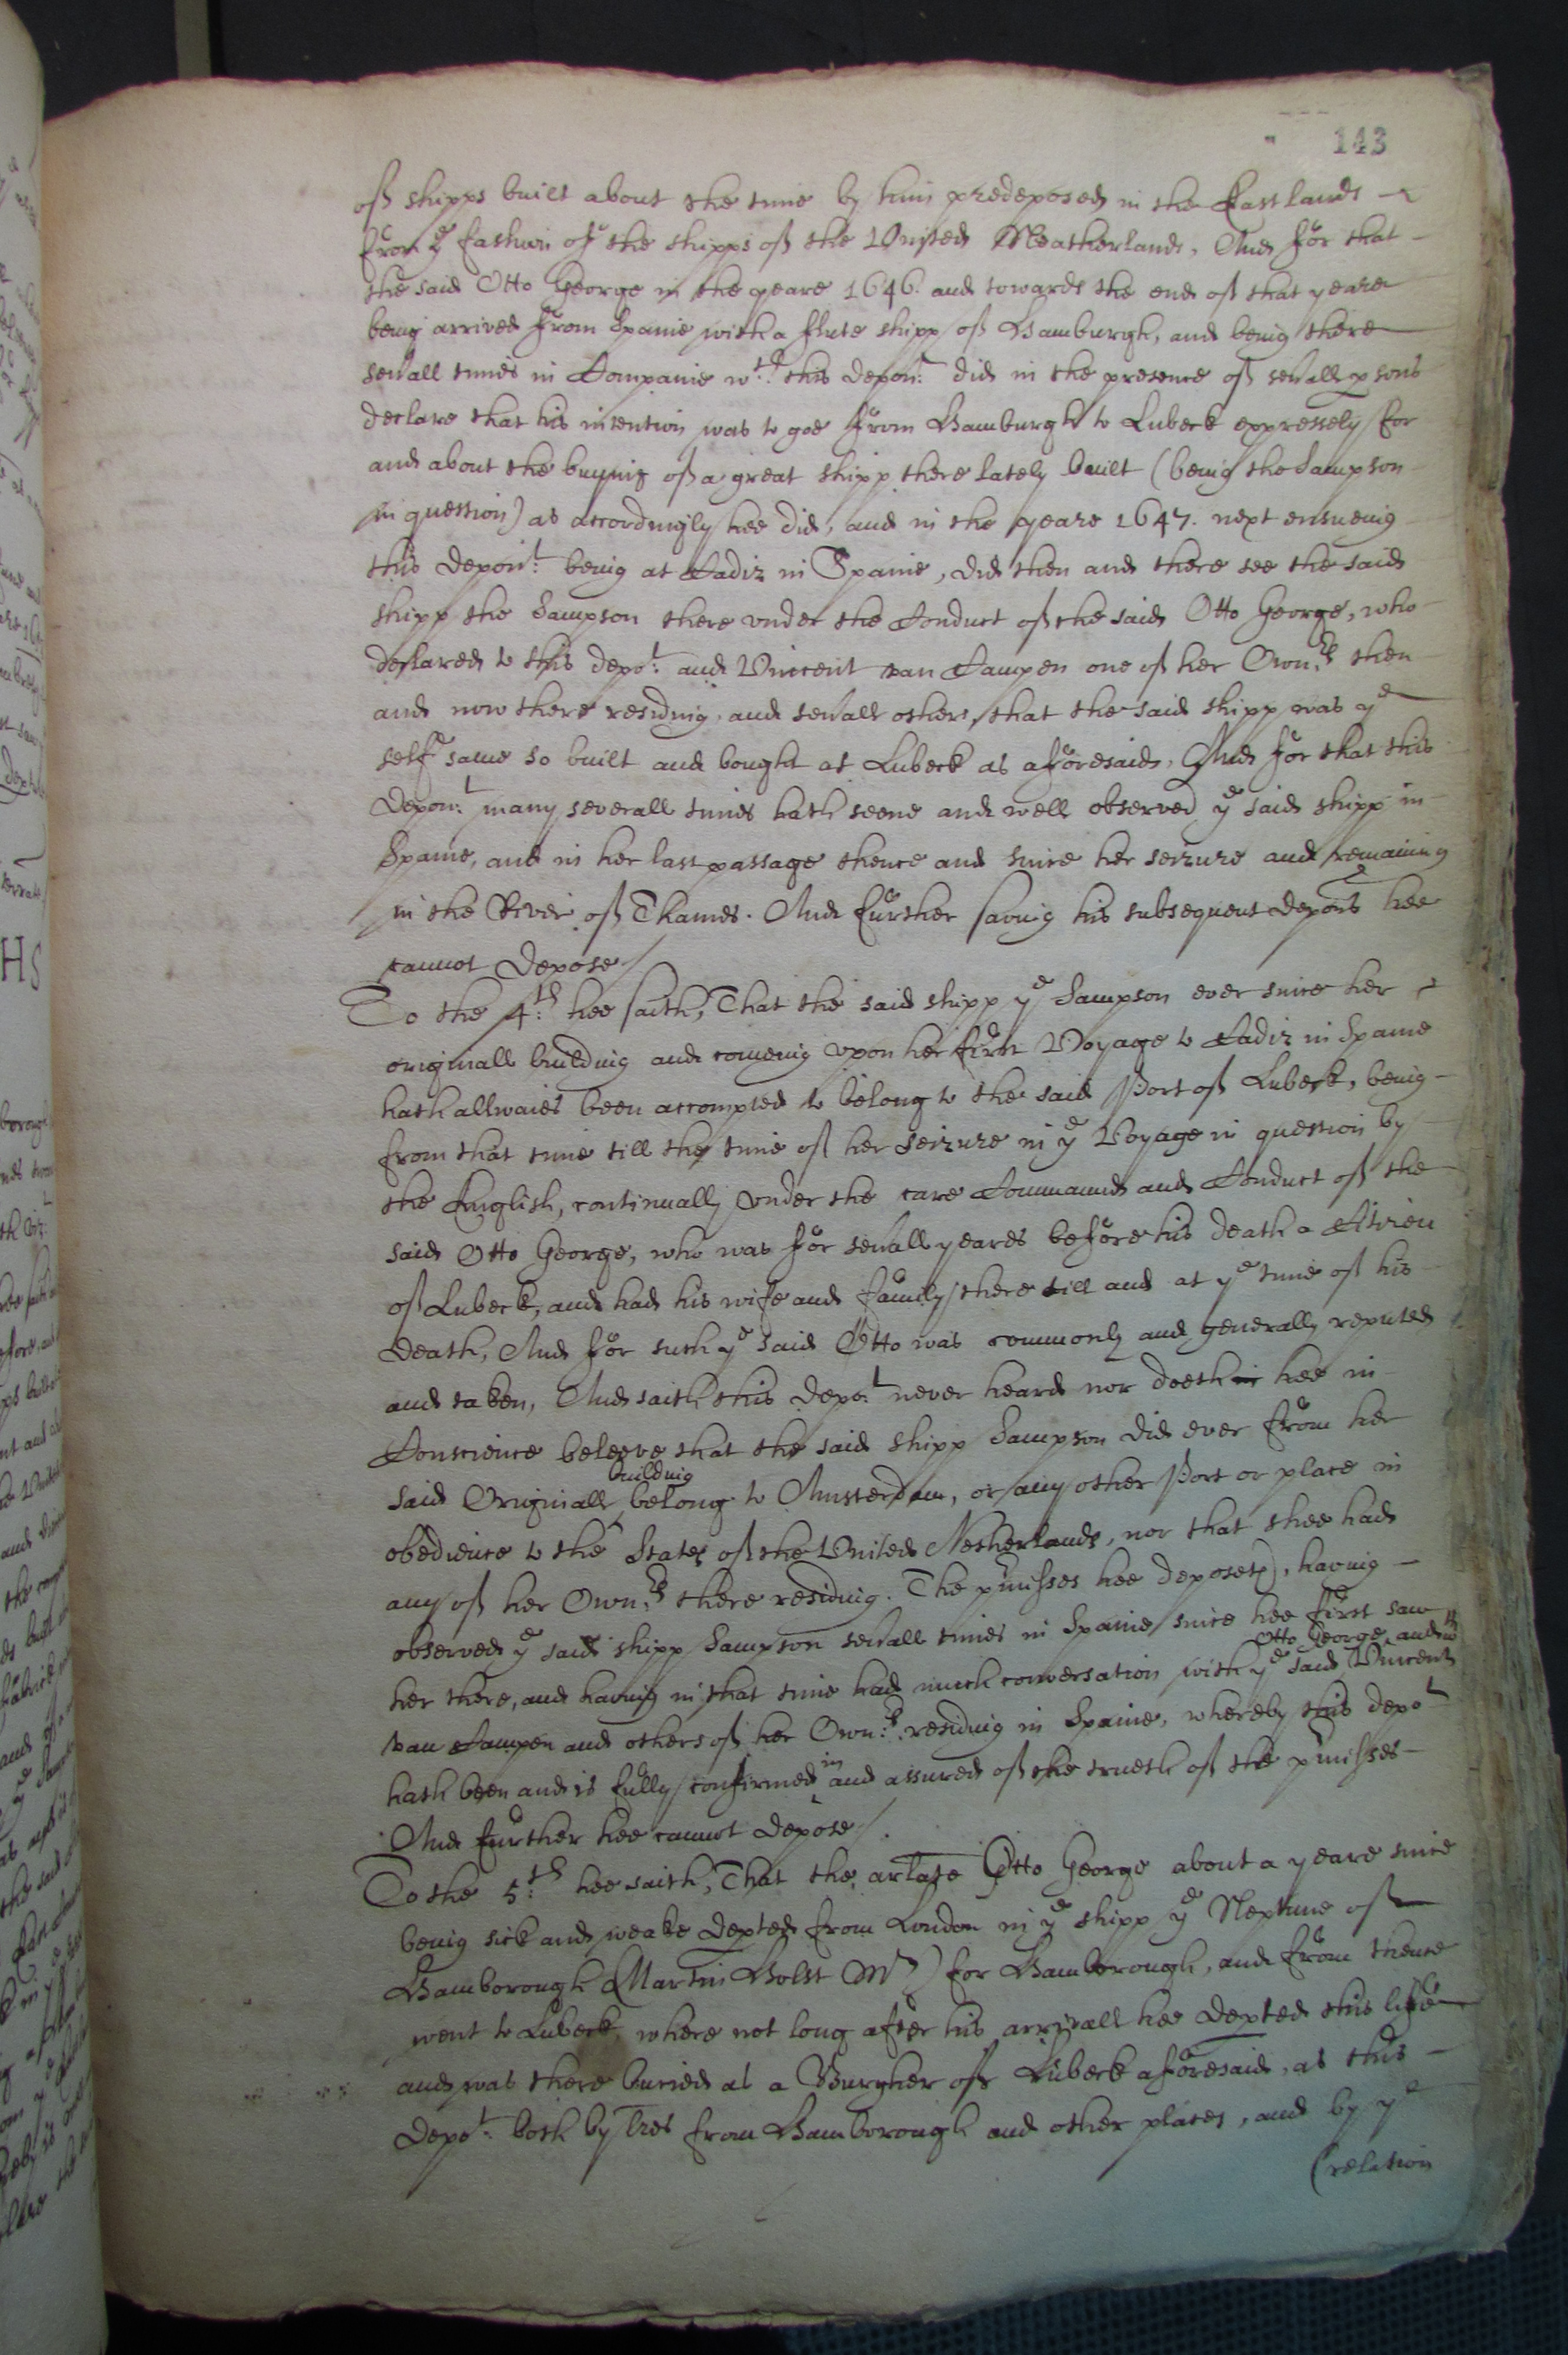 143
of shipps built about the time by him predeposed in the Eastlands
from ye fashion of the shipps of the United Neatherlands, And for that
the said Otto George in the yeare 1646. and towards the end of that yeare
being arrived from Spaine with a flute shipp of Hamburgh, and being there
sevall times in Companie wth: this depont: did in the presence of sevall psons
declare that his intention was to goe from Hamburgh to Lubeck expressely for
and about the buying of a great shipp there lately built (being the Sampson
in question) as accordingly hee did, and in the yeare 1647. next ensueing
this depont: being at Cadiz in Spaine, did then and there see the said
shipp the Sampson there under the Conduct of the said Otto George, who
declared to this depot: and Vincent van Campen one of her Ownrs then
and now there residing, and sevall others, that the said shipp was ye
self same so built and bought at Lubeck as aforesaid, And for that this
depont: many severall times hath seene and well observed ye said shipp in
Spaine, and in her last passage thence and since her seizure and remaining
in the River of Thames. And further saving his subsequent deposns hee
cannot depose/
To the 4th: hee saith, That the said shipp ye Sampson ever since her
originall building and comeing upon her first Voyage to Cadiz in Spaine
hath allwaies been accompted to belong to the said Port of Lubeck, being
from that time till the time of her seizure in ye Voyage in question by
the English, continually under the care Commaund and Conduct of the
said Otto George, who was for sevall yeares before his death a Citizen
of Lubeck, and had his wife and family there till and at ye time of his
death, And for such ye said Otto was commonly and generally reputed
and taken, And saith this depot never heard nor doeth hee in
Conscience beleeve that the said shipp Sampson did ever from her
said Originall building belong to Amsterdam, or any other Port or place in
obedience to the States of the United Netherlands, nor that shee had
any of her Ownrs there residing. The pmisses hee deposeth, having
observed ye said shipp Sampson sevall times in Spaine since hee first saw
her there, and having in that time had much conversation with ye said Otto George, and wth Vincent
van Campen and others of her Ownrs: residing in Spaine, whereby this depot
hath been and is fully confirmed in and assured of the trueth of the pmisses
And further hee cannot depose/.
To the 5th: hee saith, That the arlate Otto George about a yeare since
being sick and weake depted from London in ye shipp ye Neptune of
Hamborough (Martin Holst Mr) for Hamborough, and from thence
went to Lubeck, where not long after his arrivall hee depted this life
and was there buried as a Burgher of Lubeck aforesaid, as this
depot: both by lres from Hamborough and other places, and by ye
(relation